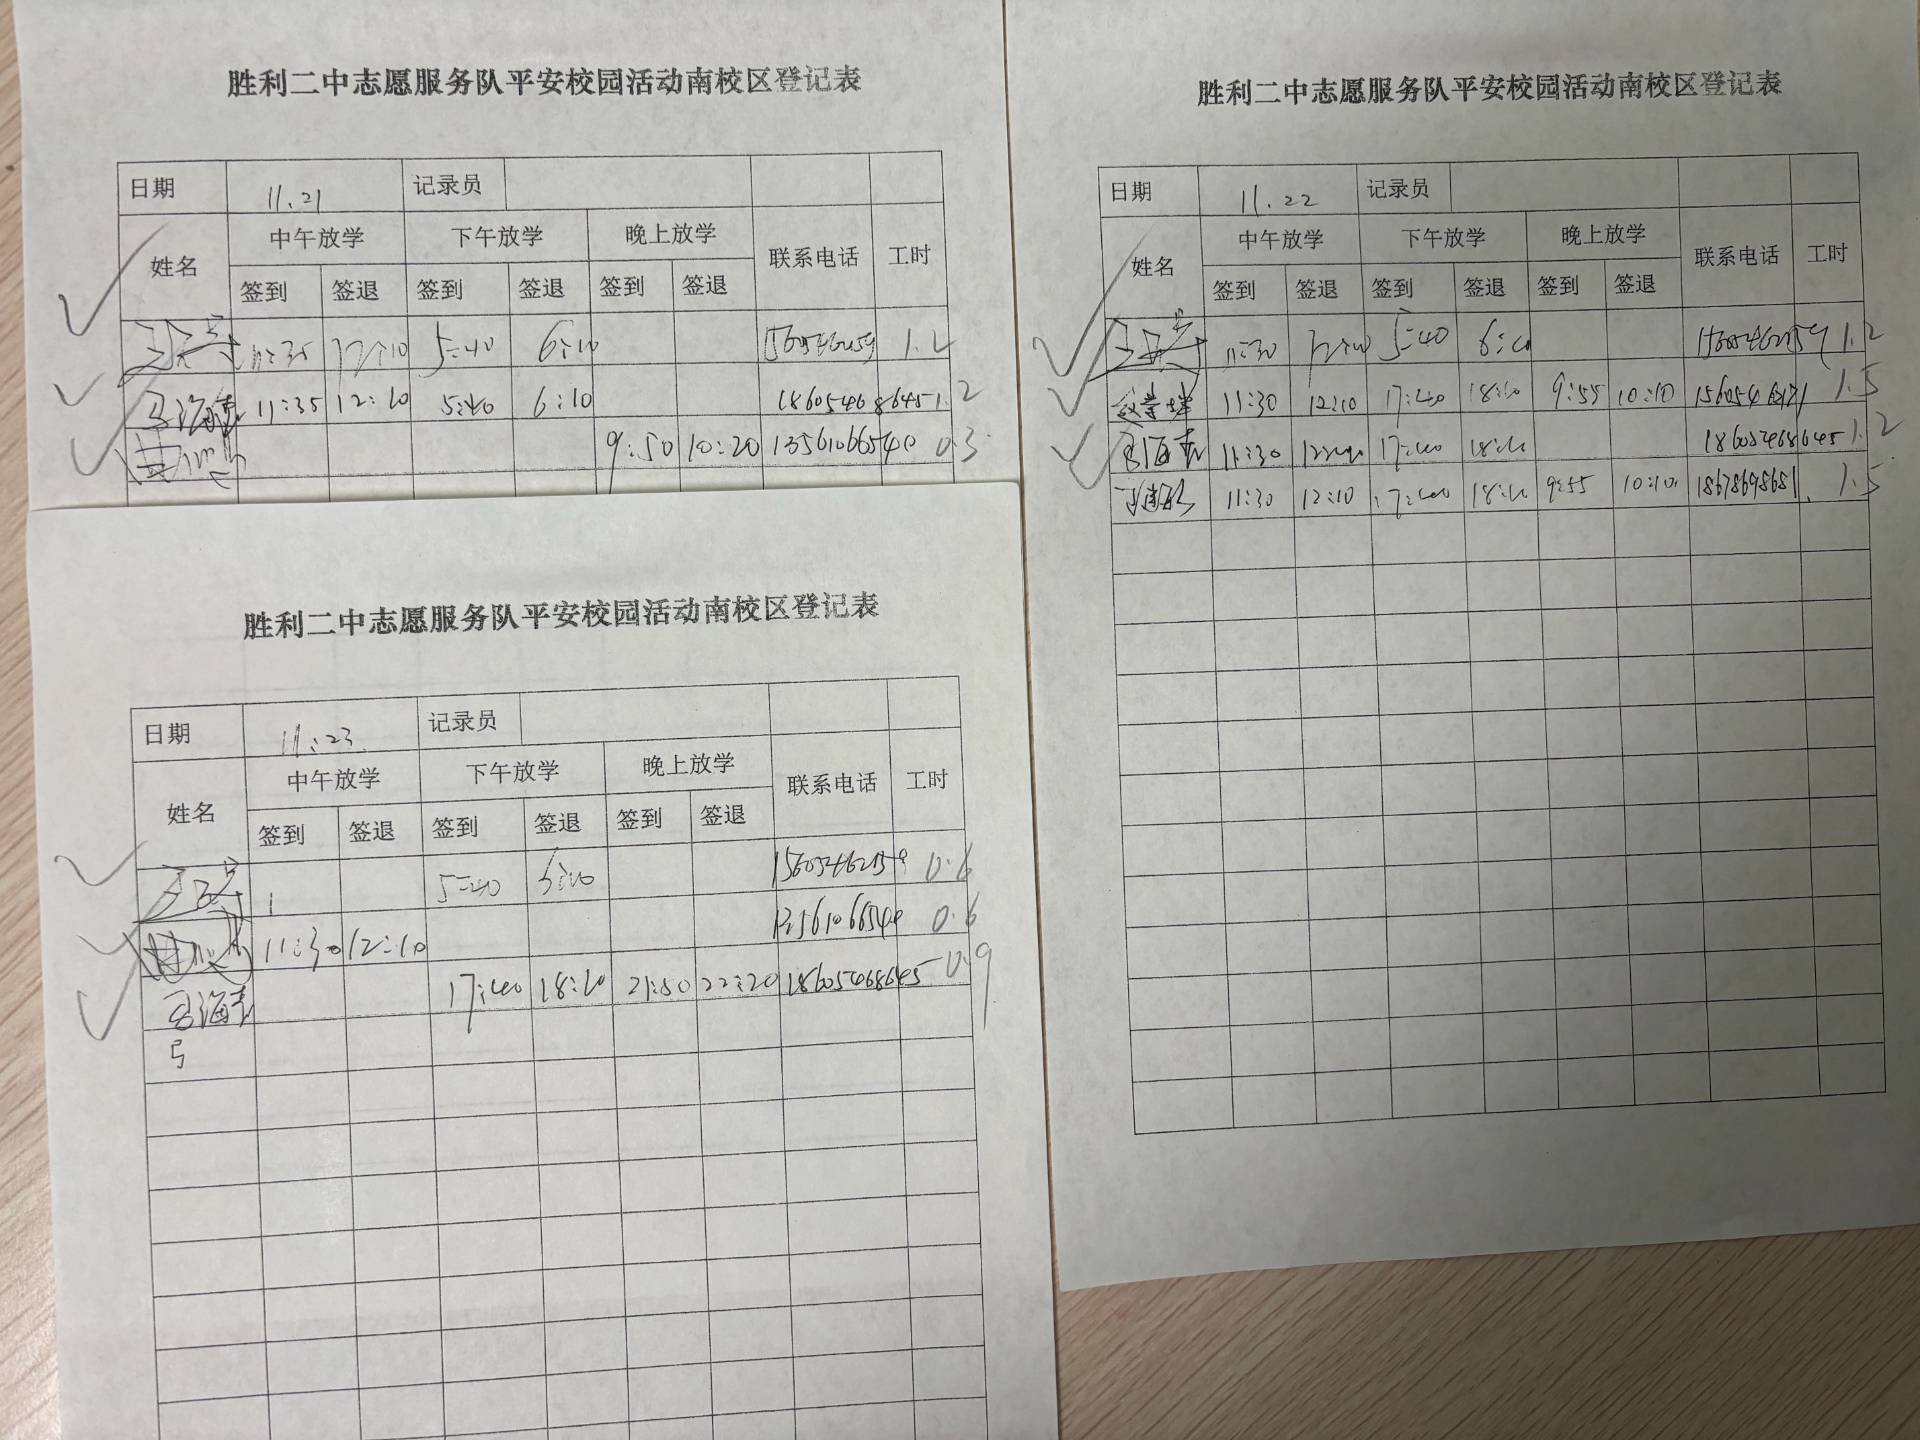 胜利二中志愿服务队平安校园活动南校区登记表
日期 11.21 记录员
姓名 中午放学 下午放学 晚上放学 联系电话 工时
签到 签退 签到 签退 签到 签退
11:35 12:10 5:40 6:10 1.2
11:35 12:10 5:40 6:10 18605468645 1.2
9:50 10:20 13561066540 0.3
胜利二中志愿服务队平安校园活动南校区登记表
日期 11.22 记录员
姓名 中午放学 下午放学 晚上放学 联系电话 工时
签到 签退 签到 签退 签到 签退
11:30 12:10 5:40 6:10 15605462159 1.2
11:30 12:10 17:40 18:10 9:55 10:10 1.5
11:30 17:40 18:10 18605468645 1.2
11:30 12:10 17:40 18:10 9:55 10:10 18678698681 1.5
胜利二中志愿服务队平安校园活动南校区登记表
日期 11.23 记录员
姓名 中午放学 下午放学 晚上放学 联系电话 工时
签到 签退 签到 签退 签到 签退
5:40 6:10 15605462159 0.6
11:30 12:10 13561066540 0.6
17:40 18:10 21:50 22:20 18605468645 0.9